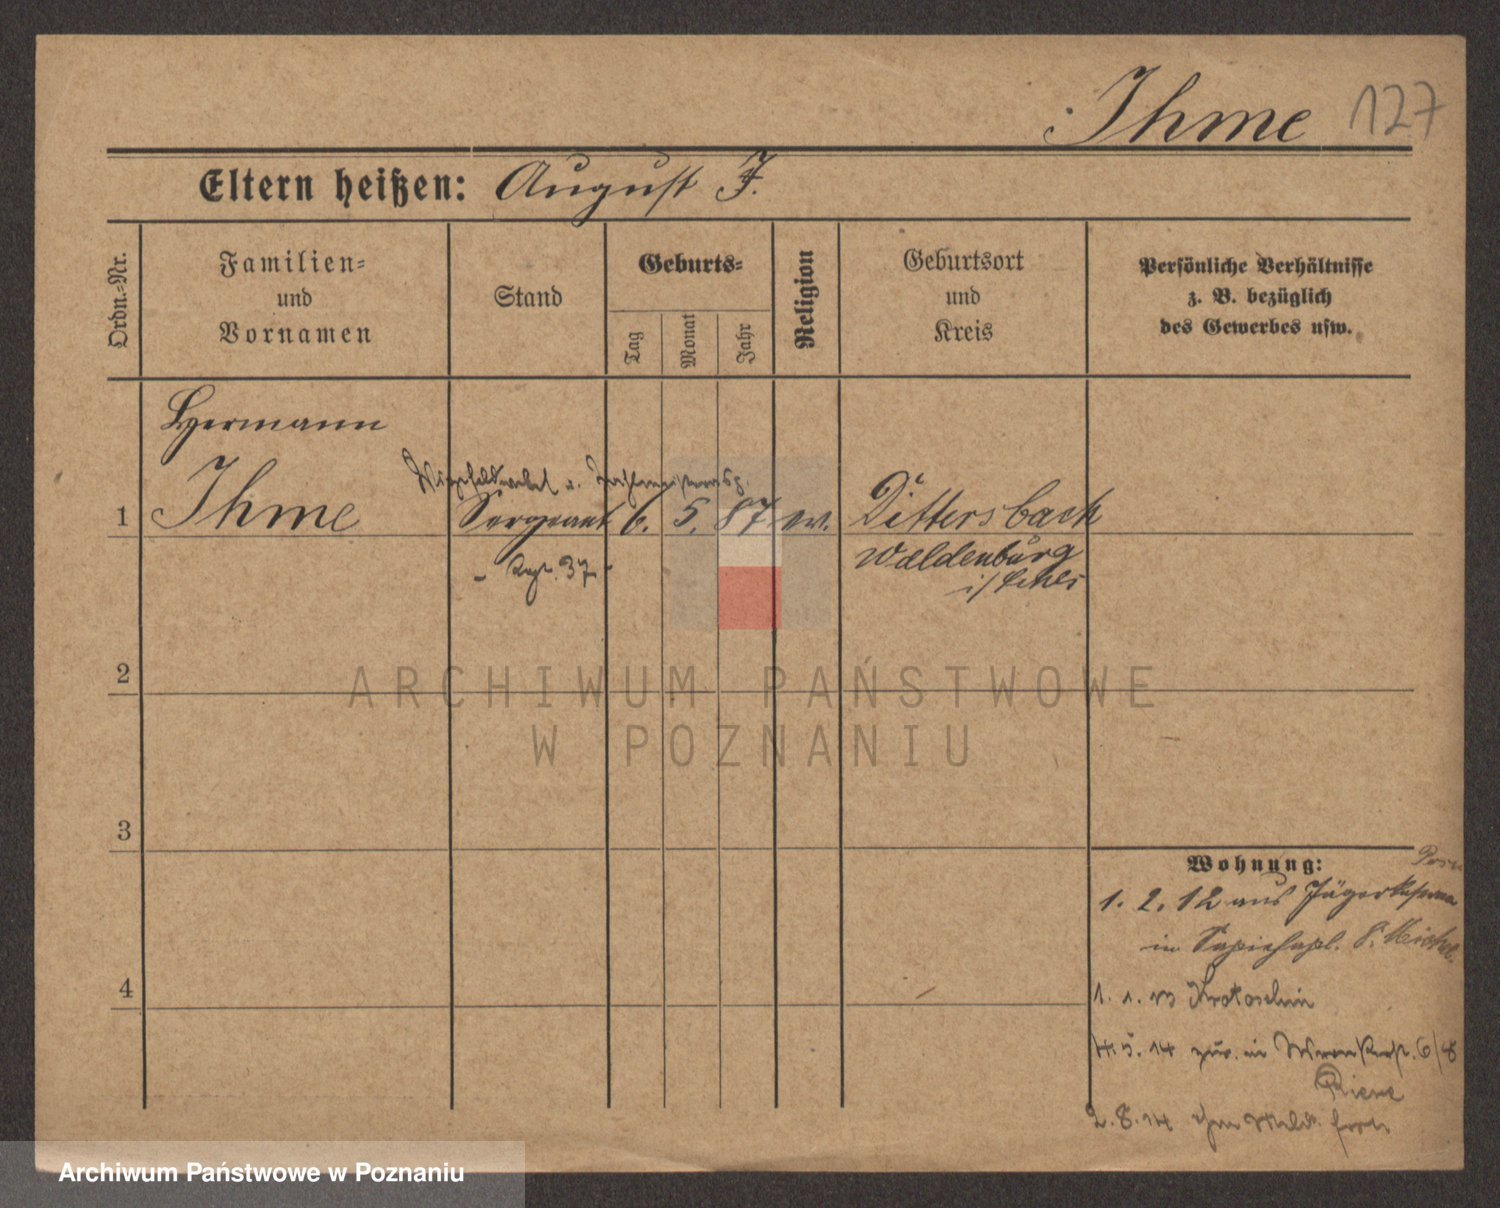 Ihme 127
Eltern heißen: August I.
Ordn.-Nr.
Familien-
und
Vornamen
Stand
Geburts-
Tag
Monat
Jahr
Religion
Geburtsort
und
Kreis
Persönliche Verhältnisse
z. B. bezüglich
des Gewerbes usw.
Hermann
Vizefeldwebel u.
1 Ihme Sergeant 6. 5. 87 ev. Dittersbach
Waldenburg
i/Schles
- Regt. 37 -
2
ARCHIWUM PAŃSTWOWE
W POZNANIU
3
Wohnung:
1. 2. 12 aus Jägerkaserne
in Sapiehapl. 8.
4
1. 1. 13 Krotoschin
5. 14 zur. in 6/8
2. 8. 14
Archiwum Państwowe w Poznaniu